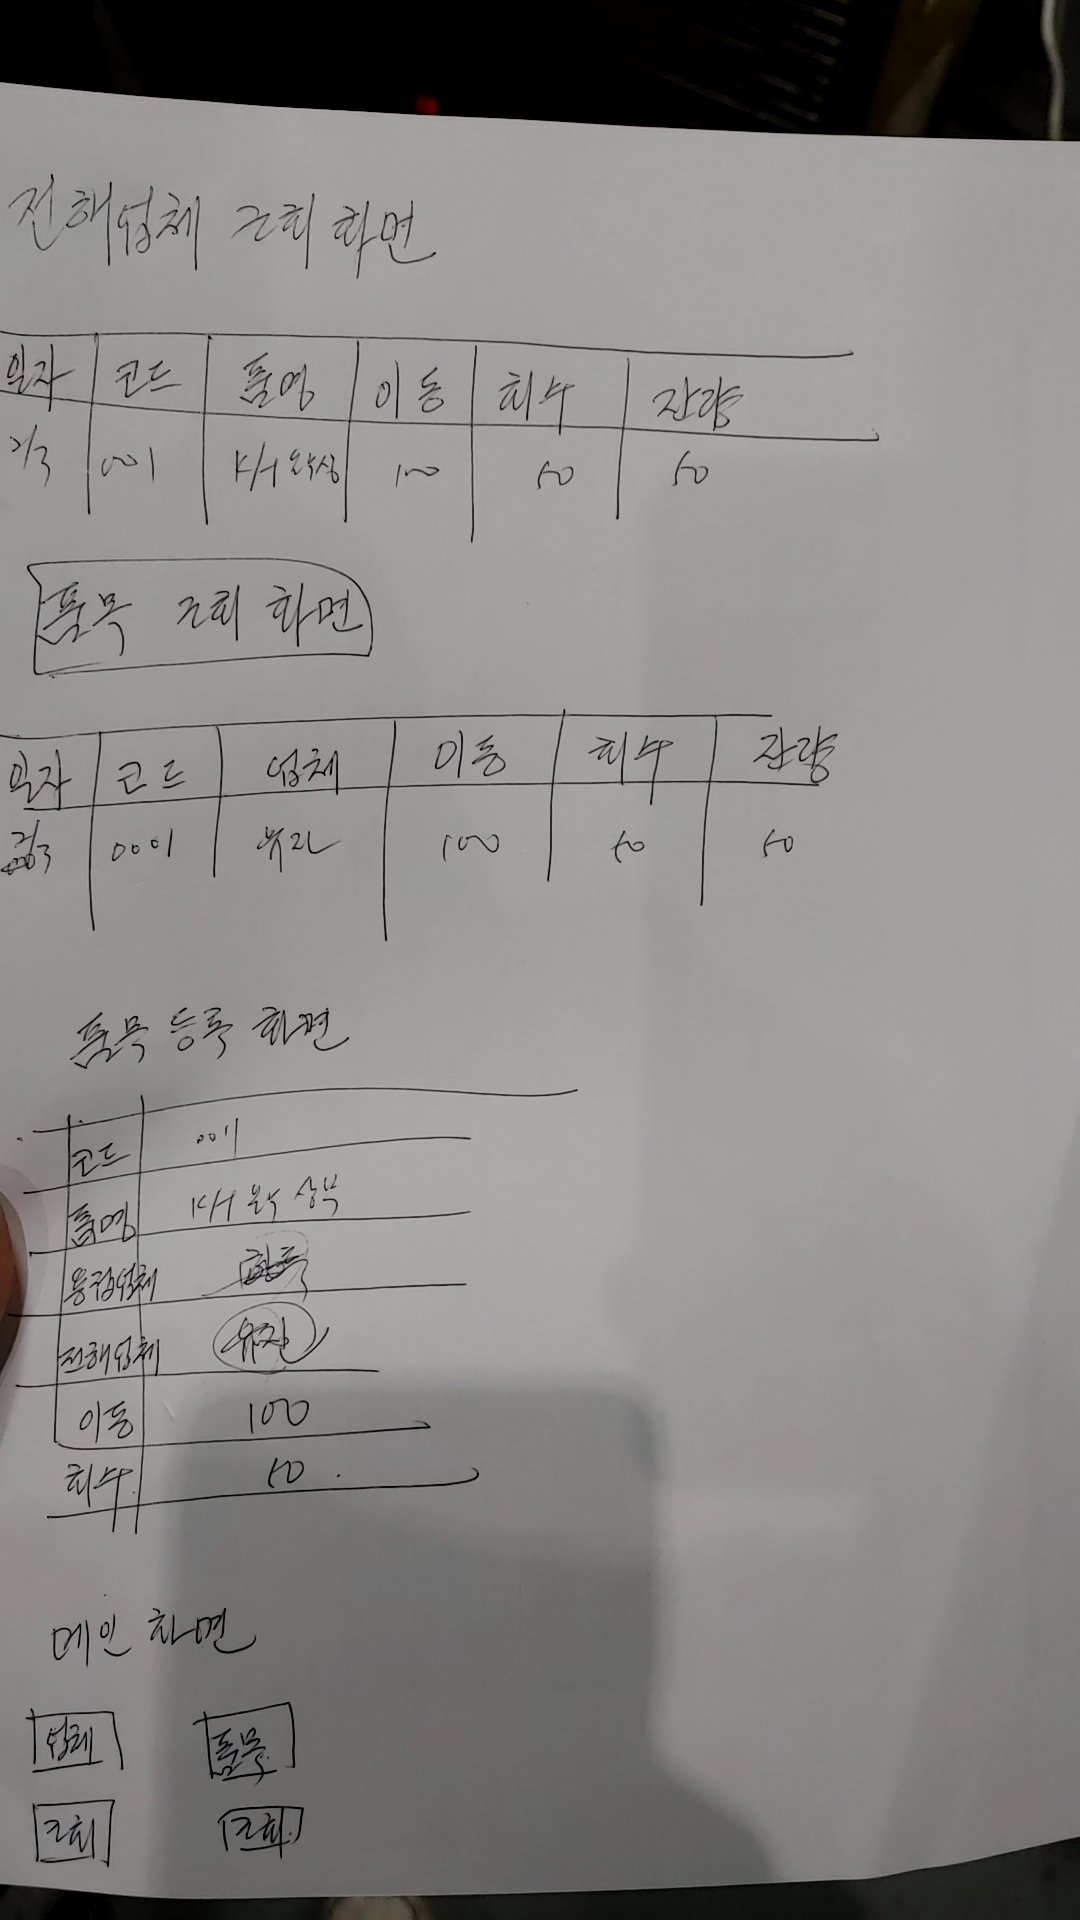 전해업체 조회 화면
일자 코드 품명 이동 회수 잔량
2/3 001 K/H 락상 100 50 50
품목 조회 화면
일자 코드 업체 이동 회수 잔량
2/3 0001 유진 100 50 50
품목 등록 화면
코드 001
품명 K/H 상부
용접업체
전해업체 유진
이동 100
회수 50
메인 화면
업체 품목
조회 조회